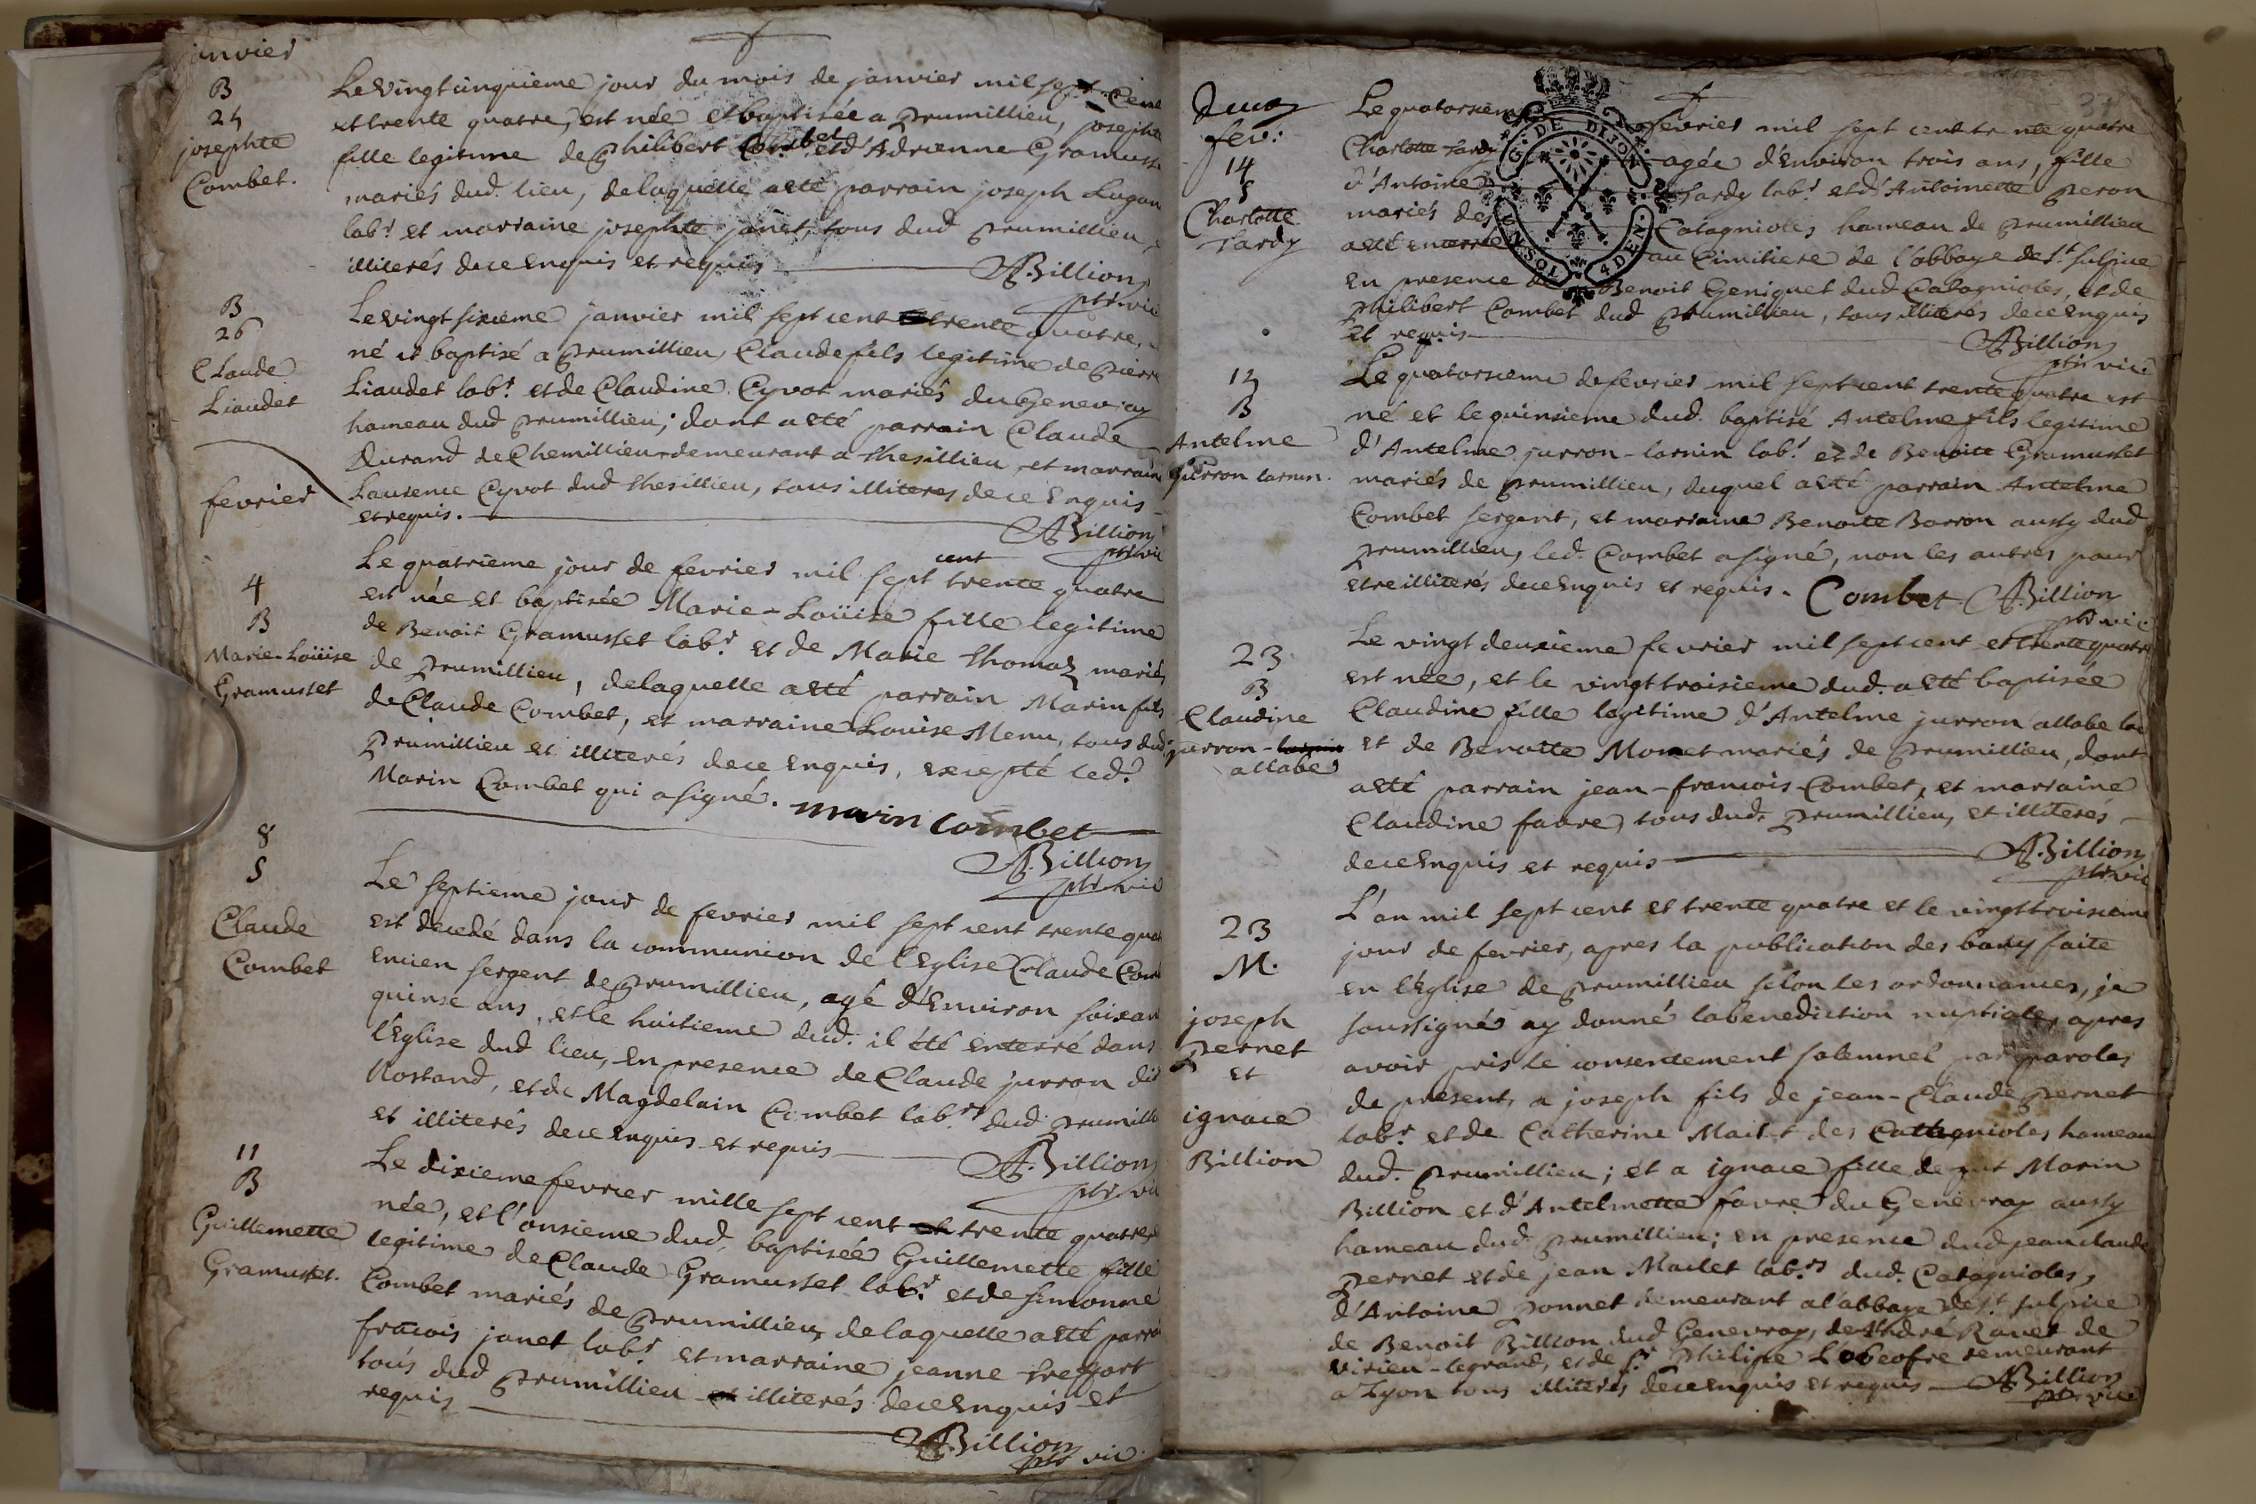 janvier
B
24
josephte
Combet.
Le vingt cinquieme jour du mois de janvier mil sept cent
et trente quatre, est née et baptisée a prumillieu, josephte
fille legitime de philibert Combet et d'Adrienne Gramusset
mariés dud. lieu, de laquelle a esté parrain joseph
labr. et marraine josephte janet, tous dud prumillieu,
illiterés de ce enquis et requis
A.Billion
ptr vic
B
26
Claude
Liaudet
Le vingt sixieme janvier mil sept cent trente quatre,
né et baptisé a prumillieu, Claude fils legitime de pierre
Liaudet labr. et de Claudine Cyvot mariés du Genevray
hameau dud prumillieu; dont a esté parrain Claude
Durand de Chemillieu demeurant a thesillieu et marraine
Laurence Cyvot dud thesillieu, tous illiteres de ce enquis
et requis.
A.Billion
ptr vic
fevrier
4
B
Marie-Loüise
Gramusset
Le quatrieme jour de fevrier mil sept cent trente quatre
est née et baptisée Marie-Loüise fille legitime
de Benoit Gramusset labr. et de Marie thomas mariés
de prumillieu, de laquelle a esté parrain Marin fils
de Claude Combet, et marraine Louise Menu, tous dud.
prumillieu et illiterés de ce enquis, excepté led.
Marin Combet qui a signé. marin combet
A.Billion
ptr vic
8
S
Claude
Combet
Le septieme jour de fevrier mil sept cent trente quat
est decedé dans la communion de l'Eglise Claude Com
encien sergent de prumillieu, agé d'Environ soixan
quinse ans, et le huitieme dud. il été enterré dans
l'Eglise dud lieu, en presence de Claude jurron dit
Rostand, et de Magdelain Combet labrs dud prumilli
et illiterés de ce enquis et requis
A.Billion
ptr vic
11
B
Guillemette
Gramusset.
Le dixieme fevrier mille sept cent trente quatre
née, et l'onsieme dud. baptisée Guillemette fille
legitime de Claude Gramusset labr. et de simonne
Combet mariés de prumillieu, de laquelle a esté parra
francois janet labr. et marraine jeanne treffort
tous dud prumillieu illiterés de ce enquis et
requis
A.Billion
ptr vic
fev:
14
S
Charlotte
tardy
Le quatorsieme fevrier mil sept cent trente quatre
Charlotte tardy agée d'Environ trois ans, fille
d'Antoine tardy labr. et d'Antoinette peron
mariés des Catagnioles hameau de prumillieu
a esté enterrée au cimitiere de l'abbaye de St. sulpice
en presence de Benoit Geniquet dud Catagnioles, et de
philibert Combet dud prumillieu, tous illiterés de ce enquis
et requis
A.Billion
ptr vic
G. DE DIJON
4 DEN.
14
B
Antelme
jurron larnin.
Le quatorsieme de fevrier mil sept cent trente quatre est
né et le quinsieme dud. baptisé Antelme fils legitime
d'Antelme jurron-larnin labr. et de Benoite Gramusset
mariés de prumillieu, duquel a esté parrain Antelme
Combet sergent, et marraine Benoite Borron aussy dud
prumillieu, led. Combet a signé, non les autres pour
etre illiterés de ce enquis et requis. Combet A.Billion
ptr vic
23
B
Claudine
jurron-larnin
allabe
Le vingt deuxieme fevrier mil sept cent et trente quatre
est née, et le vingt troisieme dud. a esté baptisée
Claudine fille legitime d'Antelme jurron allabe lab
et de Benoite Monet mariés de prumillieu, dont
a esté parrain jean-francois Combet, et marraine
Claudine favre, tous dud. prumillieu, et illiterés
de ce enquis et requis
A.Billion
ptr vic
23
M.
joseph
pernet
et
ignace
Billion
L'an mil sept cent et trente quatre et le vingt troisieme
jour de fevrier, apres la publication des bans faite
en l'Eglise de prumillieu selon les ordonnances, je
soussigné ay donné la benediction nuptiale, apres
avoir pris le consentement solemnel par paroles
de present, a joseph fils de jean-Claude pernet
labr. et de Catherine Mailet des Catagnioles hameau
dud. prumillieu; et a ignace fille de Marin
Billion et d'Antelmette favre du Genevray aussy
hameau dud. prumillieu; en presence dud jean claude
pernet et de jean Mailet labrs. dud. Catagnioles,
d'Antoine ponnet demeurant a l'abbaye de St. sulpice
de Benoit Billion dud Genevray, de André Ravet de
virieu-legrand, et de philipe demeurant
a Lyon tous illiterés de ce enquis et requis A.Billion
ptr vic